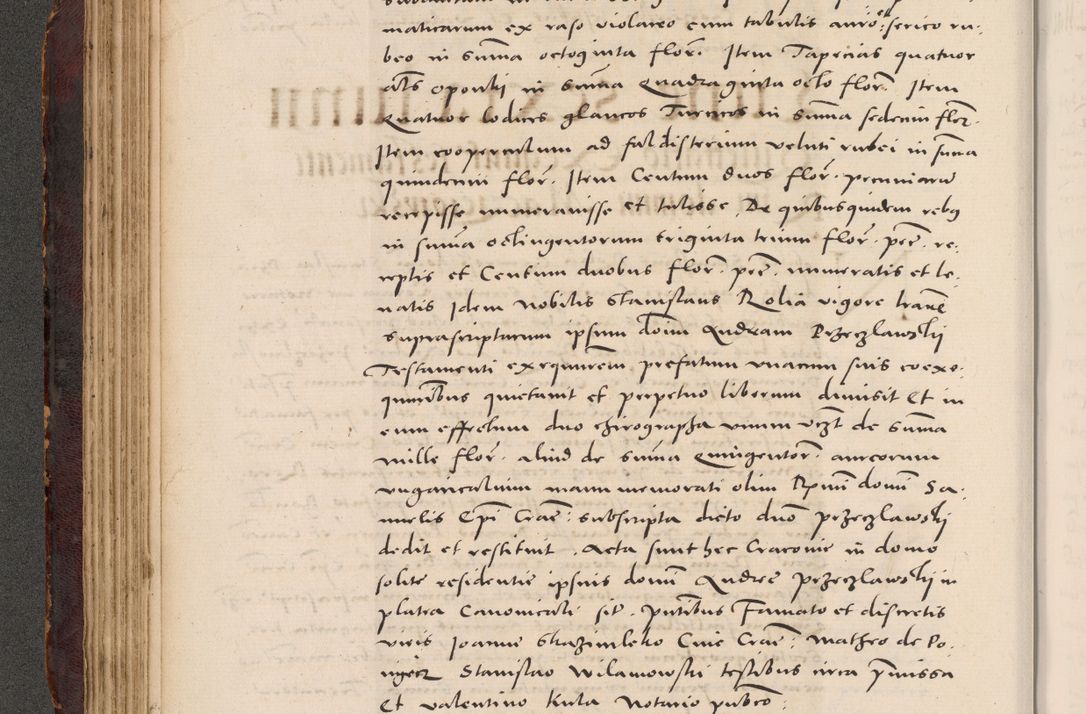 maticarum ex raso violaceo cum tabulis auro: et serico ru-
beo in sum̃a octoginta flor. Item Tapecias quatuor
als opontij in sum̃a Quadraginta octo flor. Item
Quatuor lodices glaucos Turcicos in sum̃a sedecim flor.
Item cooperculum ad faldisterium veluti rubei in sum̃a
quindecim flor. Item Centum duos flor. pecuniaru
recepisse numeravisse et tulisse. De quibusquidem rebus
in sum̃a octingentorum triginta trium flor. pec̃. re-
ceptis et Centum duobus flor. pec̃. numeratis et le-
vatis Idem Nobilis Stanislaus Rolia vigore trans̃
suprascriptarum ipsum dom̃ Andream Przeczlawskij
Testamenti exequutorem prefatum unacum suis coexe-
qutoribus quietavit et perpetuo liberum dimisit Et in
eum effectum duo chirographa unum vz̃t de sum̃a
mille flor. aliud de sum̃a Quingentor. aureorum
ungaricalium manu memorati olim Rm̃i domini Sa-
muelis Ep̃i Crac̃: subscripta dicto dno przeczlawskij
dedit et restituit. Acta sunt hec Cracovie in domo
solite residentie ipsius domini Andree przeczlawskij in
platea Canonicali sit. pñtibus Famato et discretis
viris Joanne Skazimlebo Cive Crac̃: Matheo de Po-
Stanislao Wilamowski testibus circa p̃missa
Et Valentino Kula Notario publico: